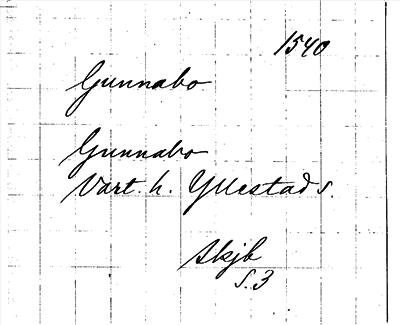 1540
Gunnabo
Gunnabo
Vart. h. Yllestad s.
Skjb
s. 3